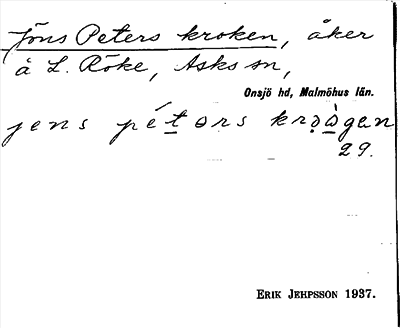 Jöns Peters kroken, åker
å L. Röke, Asks sn,
Onsjö hd, Malmöhus län.
jens pétərs krọ̀ågen
29.
ERIK JEHPSSON 1937.